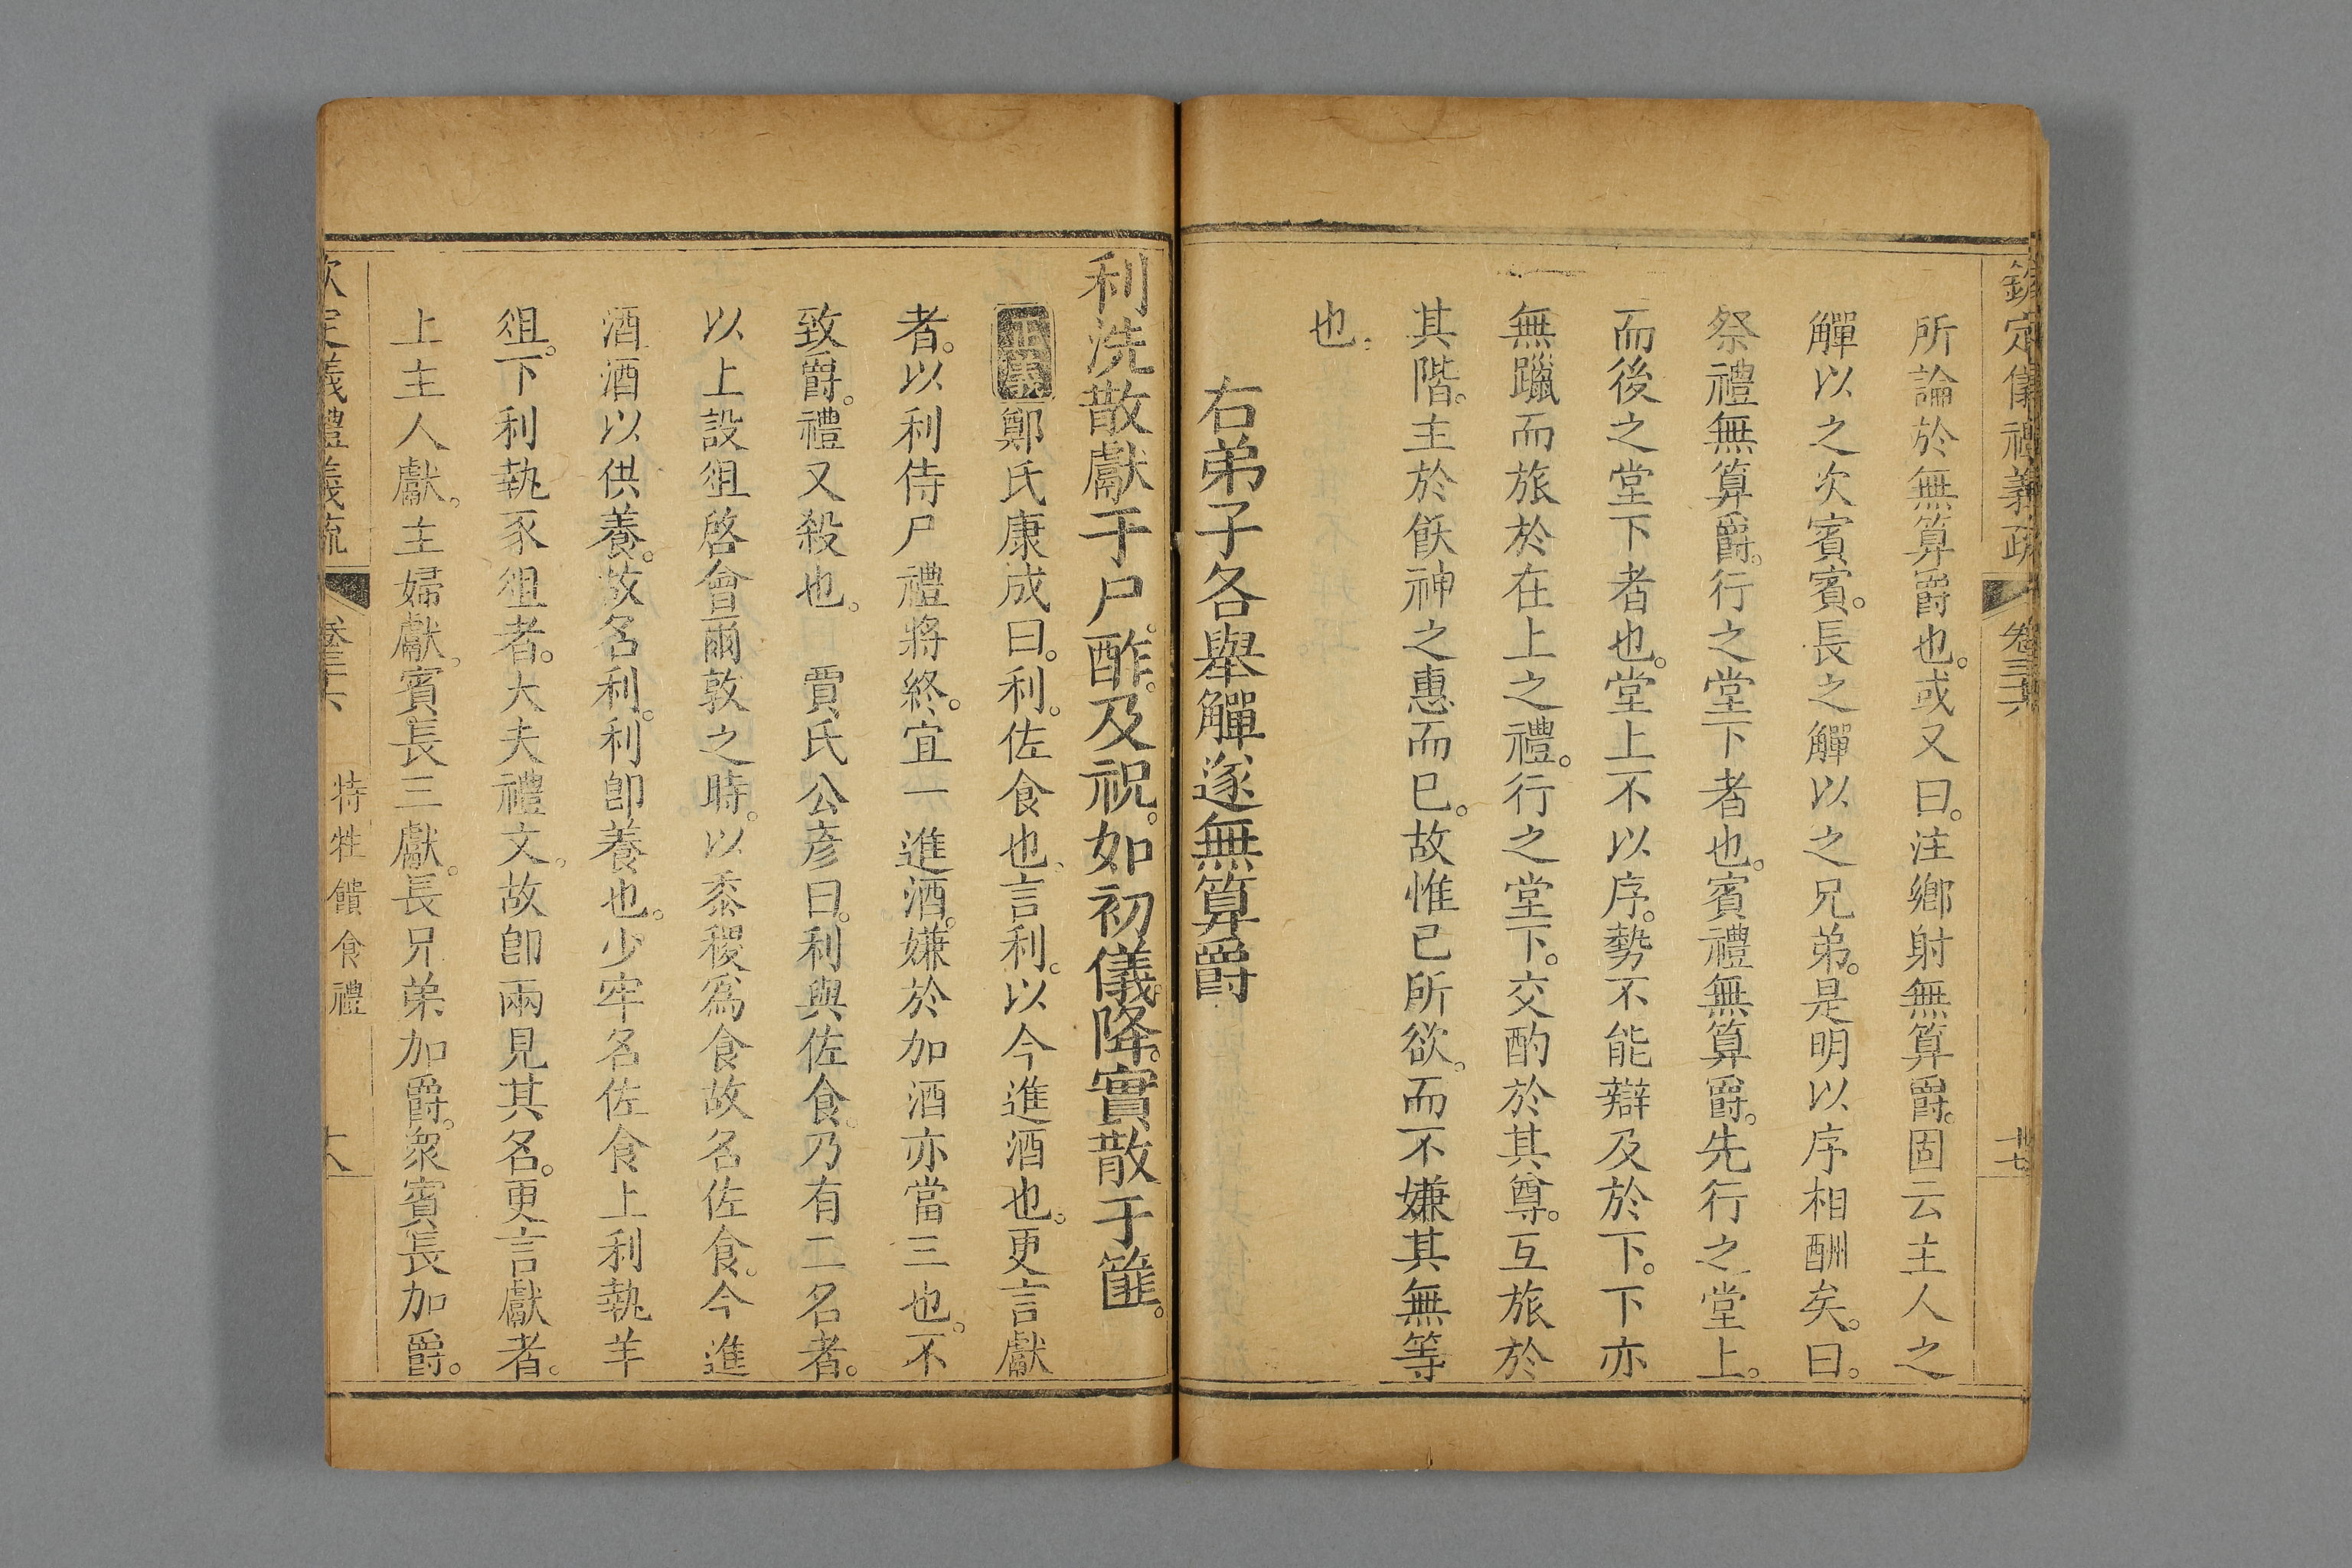 欽定儀禮義疏 卷三十六 十七
所論於無算爵也。或又曰。注鄉射無算爵。固云主人之
觶以之次賓。賓長之觶以之兄弟。是明以序相酬矣。曰。
祭禮無算爵。行之堂下者也。賓禮無算爵。先行之堂上。
而後之堂下者也。堂上不以序。勢不能辯及於下。下亦
無躐而旅於在上之禮。行之堂下。交酌於其尊。互旅於
其階。主於飫神之惠而已。故惟已所欲。而不嫌其無等
也。
右弟子各舉觶遂無算爵
利洗散獻于尸。酢。及祝。如初儀。降。實散于篚。
正義鄭氏康成曰。利。佐食也。言利。以今進酒也。更言獻
者。以利侍尸禮將終。宜一進酒。嫌於加酒亦當三也。不
致爵。禮又殺也。 賈氏公彥曰。利與佐食。乃有二名者。
以上設俎啓會爾敦之時。以黍稷爲食故名佐食。今進
酒酒以供養。故名利。利卽養也。少牢名佐食上利執羊
俎。下利執豕俎者。大夫禮文。故卽兩見其名。更言獻者。
上主人獻。主婦獻。賓長三獻。長兄弟加爵。衆賓長加爵。
欽定儀禮義疏 卷三十六 特牲饋食禮 十八